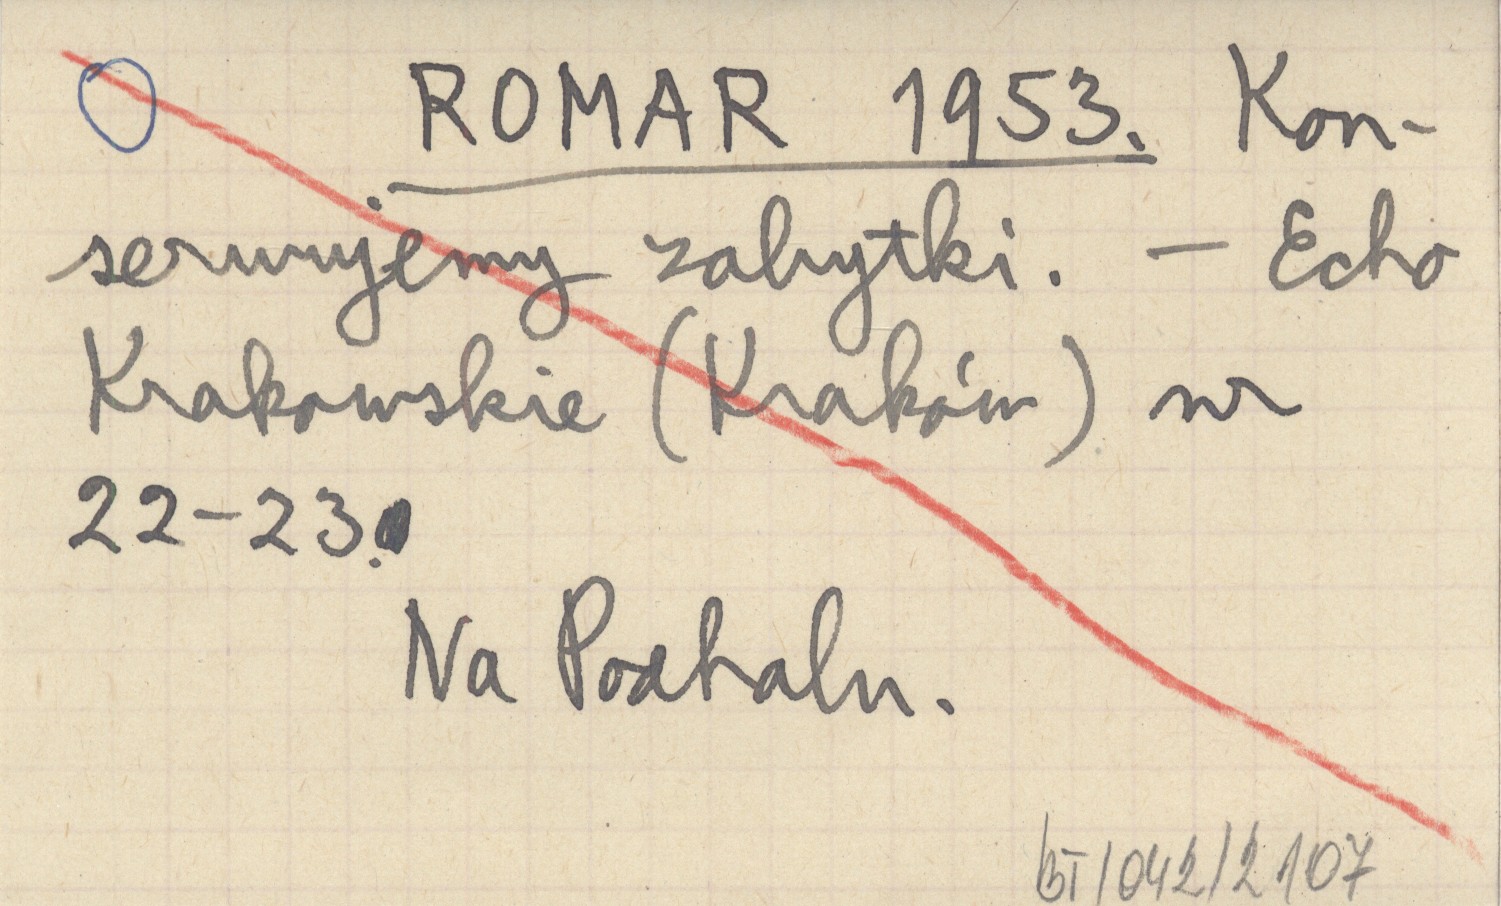 ROMAR 1953. Kon-
serwujemy zabytki. – Echo
Krakowskie (Kraków) nr
22-23.
Na Podhalu.
BT/042/2107